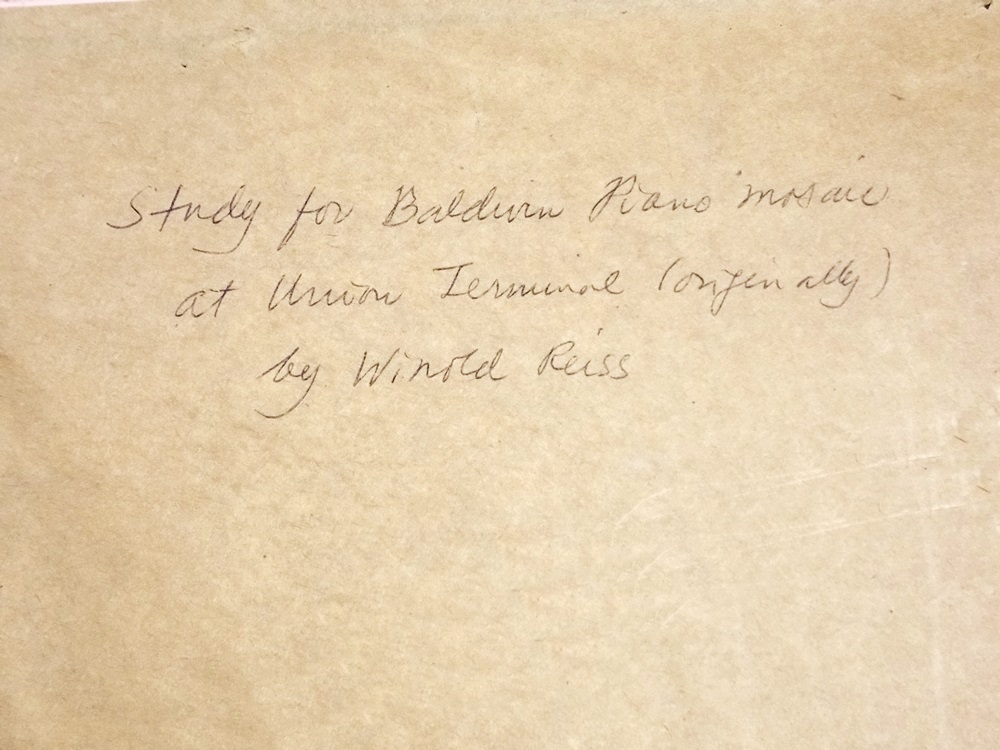 Study for Baldwin Piano mosaic
at Union Terminal (originally)
by Winold Reiss